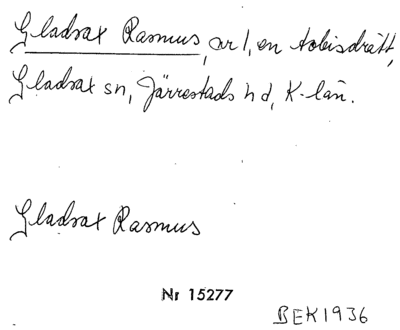 Gladsax Rasmus, nr 1, en tobisdrätt,
Gladsax sn, Järrestads hd, K-län.
Gladsax Rasmus
Nr 15277
BEK1936